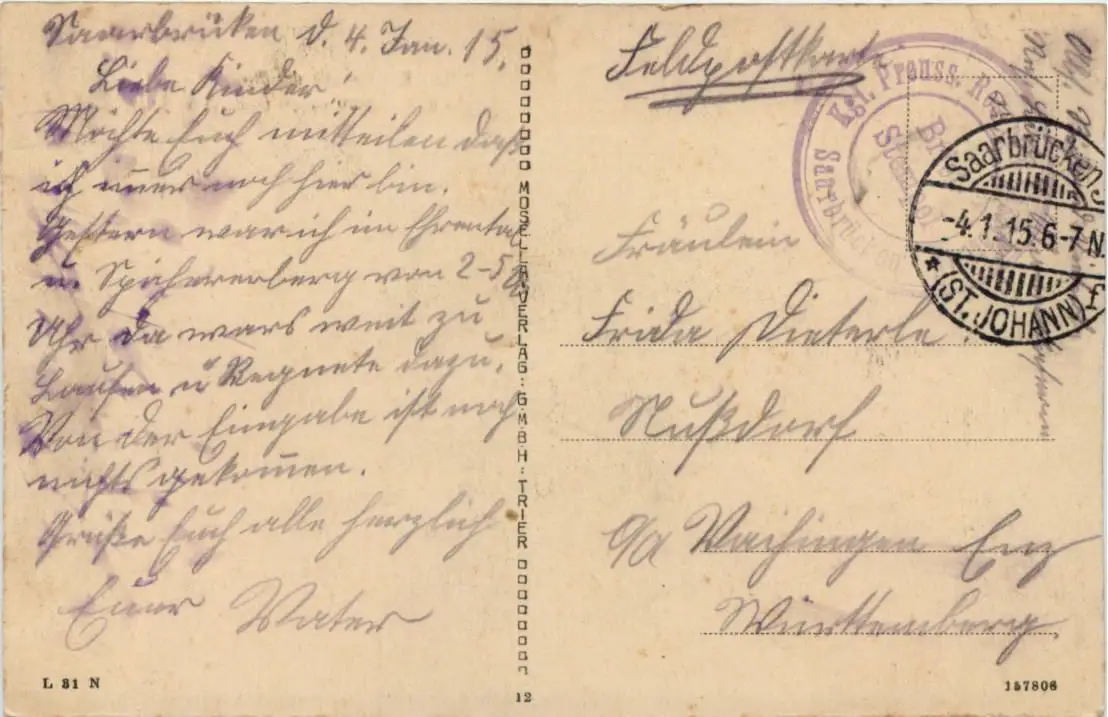 Saarbrücken d. 4. Jan. 15.
Liebe Kinder!
Möchte Euch mitteilen daß
ich immer noch hier bin.
Gestern war ich im Ehrental
u. Spicherenberg von 2-5
Uhr da wars weit zu
Laufen u Regnete dazu.
Von der Eingabe ist noch
nichts gekommen.
Grüße Euch alle herzlich
Euer Vater
MOSELLA-VERLAG: G.M.B.H: TRIER
Feldpostkart
Kgl. Preuss. Re
Saarbrücken
Saarbrücken 3
-4.1.15.6-7 N.
* (ST. JOHANN) f
Fräulein
Frida Dieterle.
Nußdorf
O/A Vaihingen Enz
Württemberg.
L 31 N
12
157806